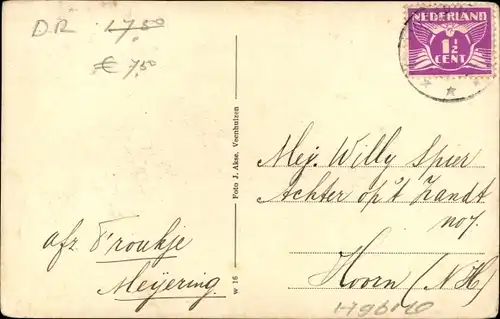 D.R. 17,50
€ 7,50
NEDERLAND
1½
CENT
Foto J. Akse, Veenhuizen
W 16
Mej. Willy Spier
Achter op 't Zandt
no 7.
Hoorn (N.H.)
afz. Froukje
Meijering.